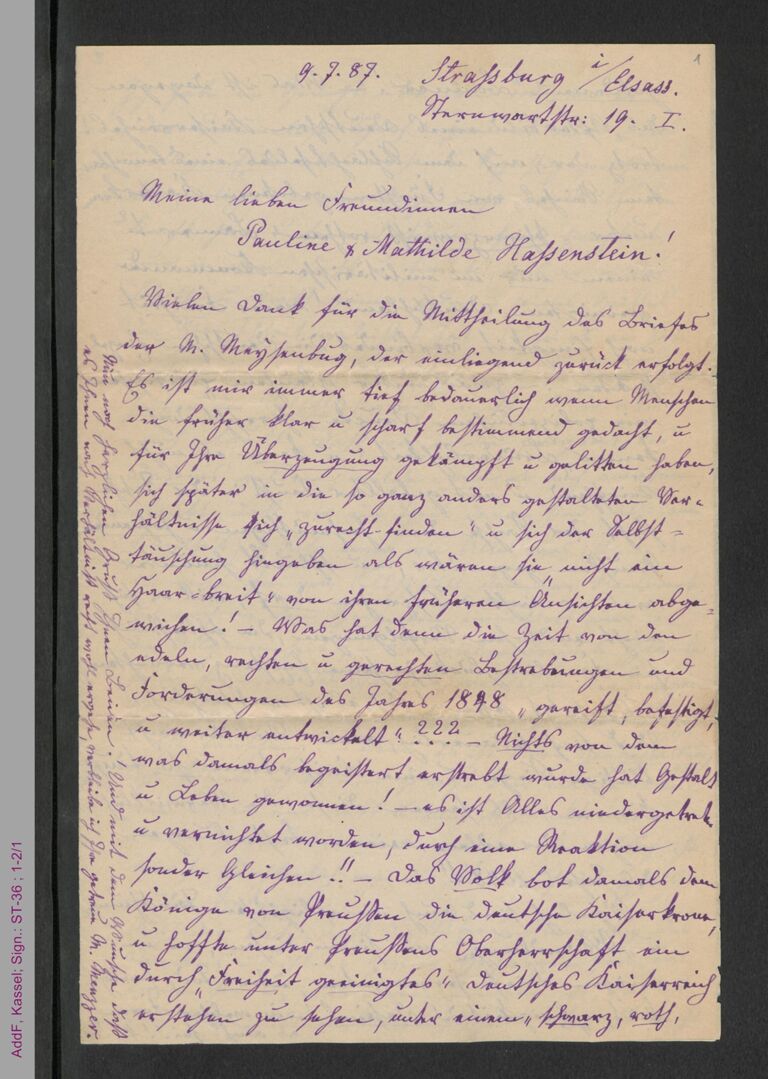 1
9.7.87. Straßburg i/Elsass.
Sternwartstr: 19. I.
Meine lieben Freundinnen
Pauline & Mathilde Haßenstein!
Vielen Dank für die Mittheilung des Briefes
der M. Meysenbug, der einliegend zurück erfolgt.
Es ist mir immer tief bedauerlich wenn Menschen
die früher klar u scharf bestimmend gedacht, u
für Ihre Überzeugung gekämpft u gelitten haben,
sich später in die so ganz anders gestalteten Ver-
hältnisse sich „zurecht-finden" u sich der Selbst-
täuschung hingeben als wären sie „nicht ein
Haar-breit" von ihren früheren Ansichten abge-
wichen! – Was hat denn die Zeit von den
edeln, rechten u gerechten Bestrebungen und
Forderungen des Jahres 1848 „gereift, befestigt,
u weiter entwickelt" ??? – Nichts von dem
was damals begeistert erstrebt wurde hat Gestalt
u Leben gewonnen! – es ist Alles niedergetret.
u vernichtet worden, durch eine Reaktion
sonder Gleichen!! – Das Volk bot damals dem
Könige von Preußen die deutsche Kaiserkrone,
u hoffte unter Preußens Oberherrschaft ein
durch „Freiheit geeinigtes" deutsches Kaiserreich
erstehen zu sehen, unter einem „schwarz, roth,
Nun noch herzlichen Gruß Ihnen Beiden! Und mit dem Wunsche daß
es Ihnen nach Verhältniß recht wohl ergehe, verbleibe ich Ihre getreue M. Menzzer.
AddF, Kassel; Sign.: ST-36 ; 1-2/1